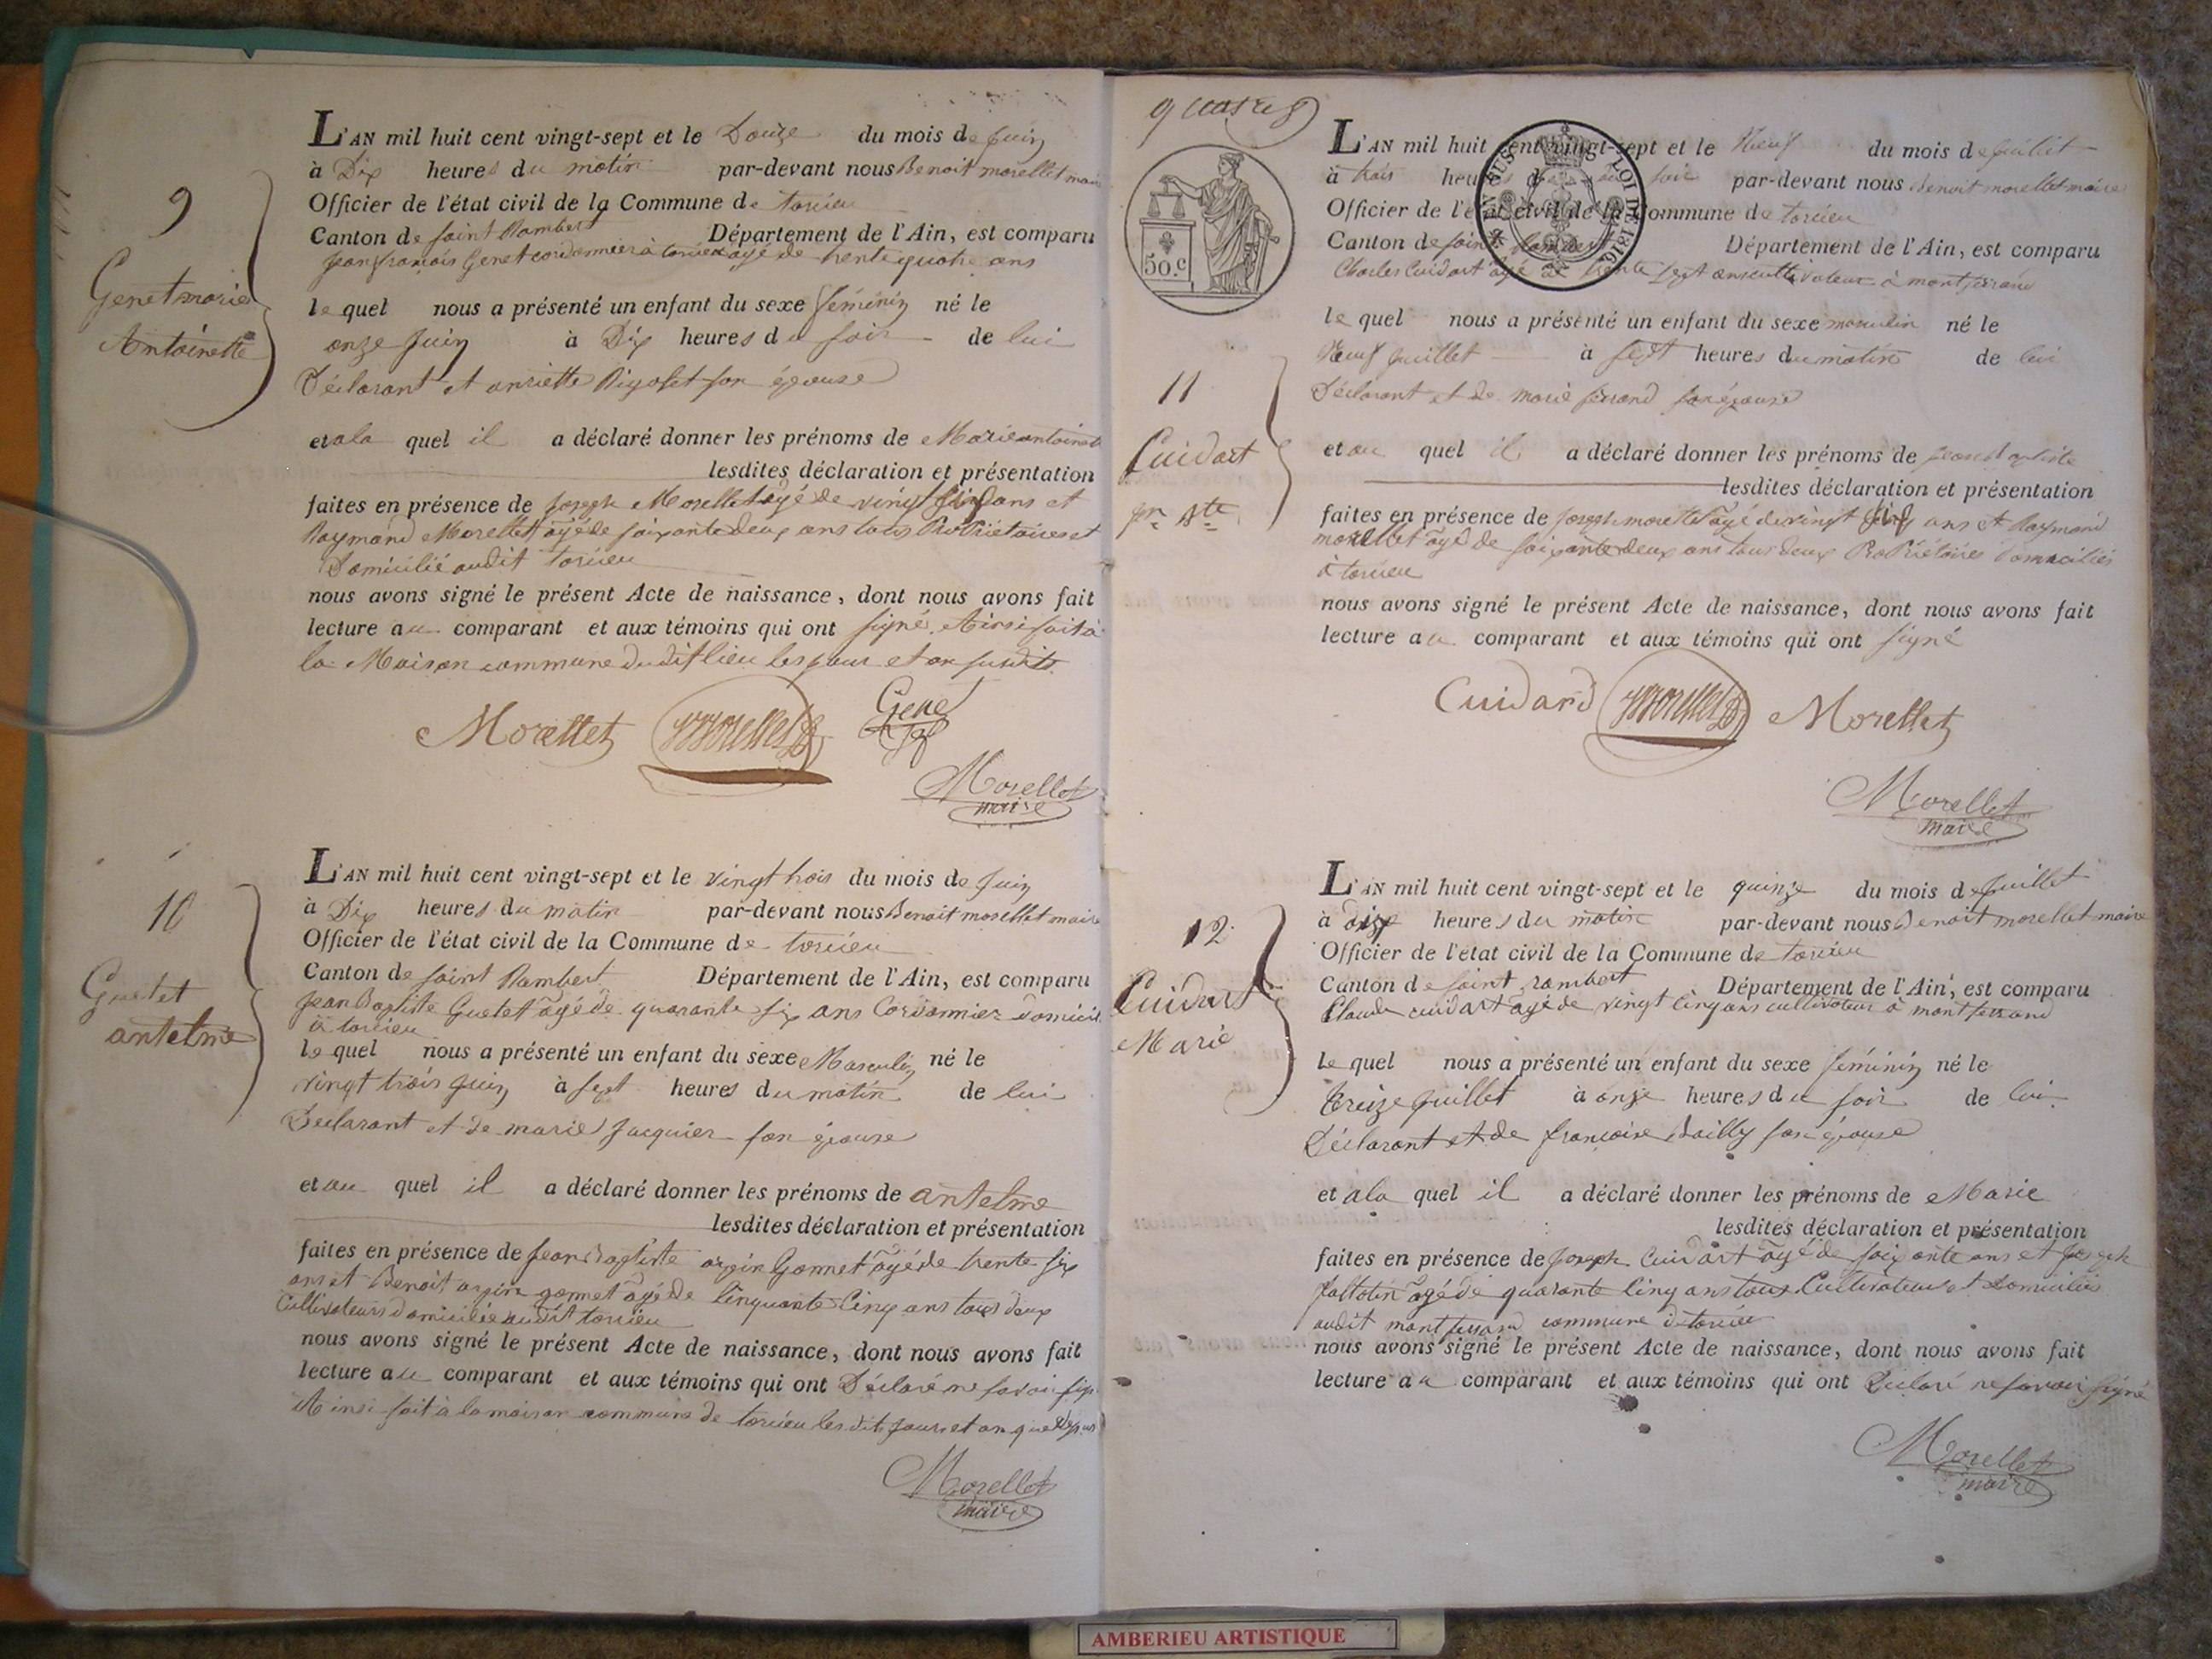 9
Genet marie
Antoinette
L'AN mil huit cent vingt-sept et le Douze du mois de Juin
à Dix heures du matin par-devant nous Benoit morellet maire
Officier de l'état civil de la Commune de torcieu
Canton de saint Rambert Département de l'Ain, est comparu
Jean françois Genet cordonnier à torcieu agé de trente quatre ans
le quel nous a présenté un enfant du sexe féminin né le
onze Juin à Dix heures du soir de lui
Déclarant et anriette Rigolet son épouse
et a la quel il a déclaré donner les prénoms de Marie antoinette
lesdites déclaration et présentation
faites en présence de Joseph Morellet agé de vingt ans et
Raymand Morellet agé de soixante deux ans tous ProPriétaires et
Domicilié audit torcieu
nous avons signé le présent Acte de naissance, dont nous avons fait
lecture au comparant et aux témoins qui ont signé. Ainsi fait à
la Maison commune dudit lieu les jour et an susdits
Morellet Morellet Genet
Morellet
maire
10
Guetet
antelme
L'AN mil huit cent vingt-sept et le vingt trois du mois de Juin
à Dix heures du matin par-devant nous Benoit morellet maire
Officier de l'état civil de la Commune de torcieu
Canton de saint Rambert Département de l'Ain, est comparu
Jean Baptiste Guetet agé de quarante six ans Cordonnier Domicilié
à torcieu
le quel nous a présenté un enfant du sexe Masculin né le
vingt trois Juin à sept heures du matin de lui
Déclarant et de marie Jacquier son épouse
et au quel il a déclaré donner les prénoms de antelme
lesdites déclaration et présentation
faites en présence de Jean Baptiste orgin Gonnet agé de trente six
ans et Benoit orgin gonnet agé de Cinquante Cinq ans tous deux
Cultivateurs domicilié audit torcieu
nous avons signé le présent Acte de naissance, dont nous avons fait
lecture au comparant et aux témoins qui ont Déclaré ne savoir
Ainsi fait à la maison commune de torcieu les dits jours et an que
Morellet
maire
50.c
LOI DE 1816
11
Cuidart
jn Bte
L'AN mil huit cent vingt-sept et le Neuf du mois de Juillet
à trois heures du soir par-devant nous Benoit morellet maire
Officier de l'état civil de la Commune de torcieu
Canton de saint Rambert Département de l'Ain, est comparu
Charles Cuidart agé de trente sept ans cultivateur à montferrand
le quel nous a présenté un enfant du sexe masculin né le
Neuf Juillet à sept heures du matin de lui
Déclarant et de marie ferrand son épouse
et au quel il a déclaré donner les prénoms de Jean baptiste
lesdites déclaration et présentation
faites en présence de Joseph morellet agé de vingt ans et Raymand
morellet agé de soixante deux ans tous deux ProPriétaires domiciliés
à torcieu
nous avons signé le présent Acte de naissance, dont nous avons fait
lecture au comparant et aux témoins qui ont signé
Cuidard Morellet Morellet
Morellet
maire
12
Cuidart
Marie
L'AN mil huit cent vingt-sept et le quinze du mois de Juillet
à heures du matin par-devant nous Benoit morellet maire
Officier de l'état civil de la Commune de torcieu
Canton de saint rambert Département de l'Ain, est comparu
Claude cuidart agé de vingt Cinq ans cultivateur à montferrand
Le quel nous a présenté un enfant du sexe féminin né le
treize Juillet à onze heures du soir de lui
Déclarant et de françoise Bailly son épouse
et à la quel il a déclaré donner les prénoms de Marie
lesdites déclaration et présentation
faites en présence de Joseph Cuidart agé de soixante ans et Joseph
agé de quarante Cinq ans tous Cultivateurs et Domiciliés
audit montferrand commune de torcieu
nous avons signé le présent Acte de naissance, dont nous avons fait
lecture au comparant et aux témoins qui ont Déclaré ne savoir signé
Morellet
maire
AMBERIEU ARTISTIQUE